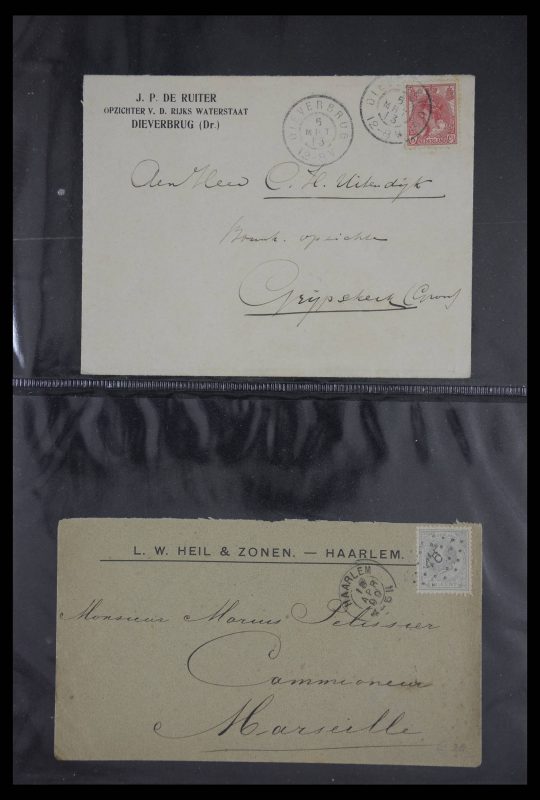 J. P. DE RUITER
OPZICHTER V. D. RIJKS WATERSTAAT
DIEVERBRUG (Dr.)
DIEVERBRUG
6
MRT
13
12-
6
13
12-
Aan Heer C. H. Uitendijk
opzichter
Grijpskerk (Gron)
L. W. HEIL & ZONEN. — HAARLEM.
HAARLEM
18
APR
90
Monsieur Marius Pelissier
Commioneur
Marseille